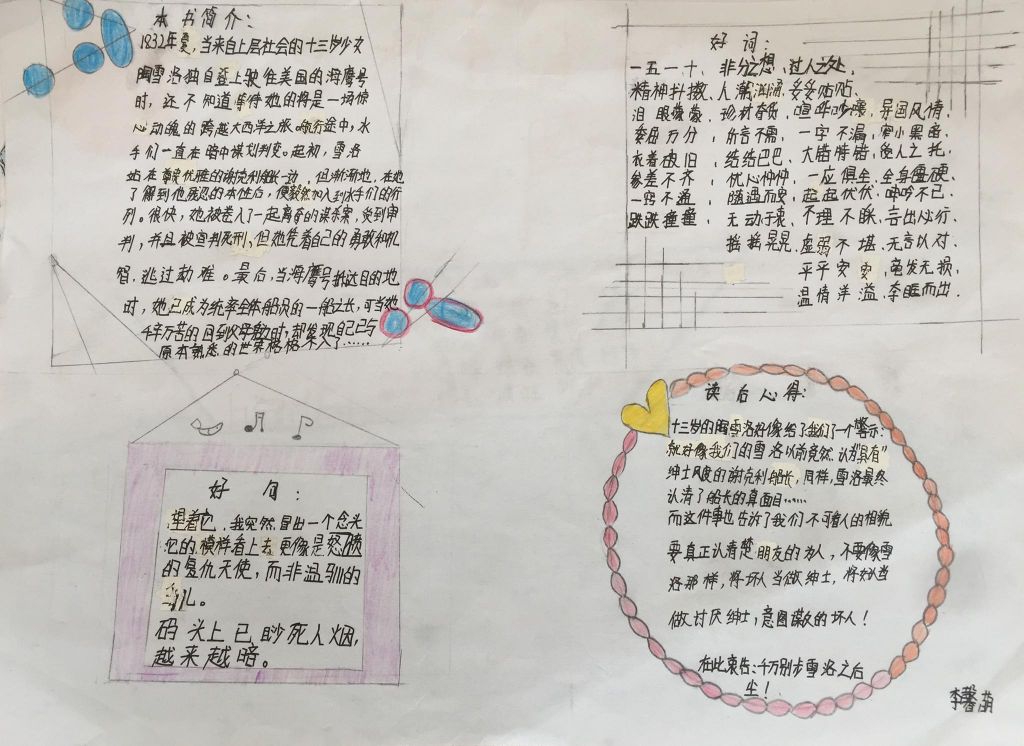 本书简介：
1832年夏，当来自上层社会的十三岁少女
陶雪洛独自登上驶往美国的海鹰号
时，还不知道等待她的将是一场惊
心动魄的跨越大西洋之旅。航行途中，水
手们一直在暗中谋划叛变。起初，雪洛
站在尊贵优雅的谢克利船长一边，但渐渐地，在她
了解到他残忍的本性后，便毅然加入到水手们的行
列。很快，她被卷入了一起离奇的谋杀案，受到审
判，并且被宣判死刑，但她凭着自己的勇敢和机
智，逃过劫难。最后，当海鹰号抵达目的地
时，她已成为统率全体船员的一船之长，可当她
千辛万苦的回到父母身边时，却发现自己已与
原本熟悉的世界格格不入了……
好词：
一五一十、非分之想、过人之处、
精神抖擞、人潮汹涌、妥妥贴贴、
泪眼蒙蒙、珍材奇货、喧哗吵嚷、异国风情、
委屈万分、所言不需、一字不漏、窄小黑暗、
衣着破旧、结结巴巴、大错特错、受人之托、
参差不齐、忧心忡忡、一应俱全、全身僵硬、
一窍不通、随遇而安、起起伏伏、呻吟不已、
跌跌撞撞、无动于衷、不理不睬、言出必行、
摇摇晃晃、虚弱不堪、无言以对、
平平安安、毫发无损、
温情洋溢、夺眶而出.
好句：
望着它，我突然冒出一个念头
它的模样看上去更像是怒愤
的复仇天使，而非温驯的
鸟儿。
码头上已渺死人烟，
越来越暗。
读后心得：
十三岁的陶雪洛好像给了我们了一个警示：
就好像我们的雪洛以前竟然认为“具有”
绅士风度的谢克利船长，同样，雪洛最终
认清了船长的真面目……
而这件事也告诉了我们不可看人的相貌
要真正认清楚朋友的为人，不要像雪
洛那样，将坏人当做绅士，将好人当
做讨厌绅士，意图谋反的坏人！
在此哀告：千万别步雪洛之后
尘！
李馨萌